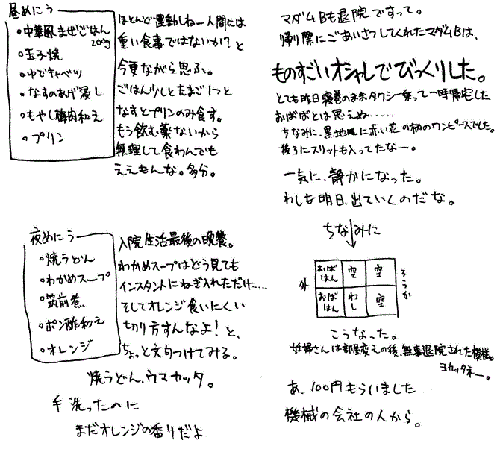 昼めにう
・中華風まぜごはん
200g
・玉子焼
・ゆでキャベツ
・なすのあげ浸し
・もやし精肉和え
・プリン
ほとんど運動しねー人間には
重い食事ではないか?と
今更ながら思ふ。
ごはん少しとたまご1つと
なすとプリンのみ食す。
もう飲む薬ないから
無理して食わんでも
ええもんな。多分。
夜めにう
・焼うどん
・わかめスープ
・筑前煮
・ポン酢和え
・オレンジ
入院生活最後の晩餐。
わかめスープはどう見ても
インスタントにねぎ入れただけ…
そしてオレンジ食いにくい
切り方すんなよ!と、
ちょっと文句つけてみる。
焼うどん、ウマカッタ。
手洗ったのに
まだオレンジの香りだよ
マダムBも退院ですって。
帰り際にごあいさつしてくれたマダムBは、
ものすごいオシャレでびっくりした。
とても昨日寝巻のままタクシー乗って一時帰宅した
おばばとは思えぬ……
ちなみに、黒地に赤い花の柄のワンピースでした。
後ろにスリットも入ってたなー。
一気に静かになった。
わしも明日、出ていくのだな。
ちなみに
外
おばはん 空 空
おばはん わし 空
ろうか
こうなった。
妊婦さんは部屋変えの後、無事退院された模様。
ヨカッタネー。
あ、100円もらいました
機械の会社の人から。